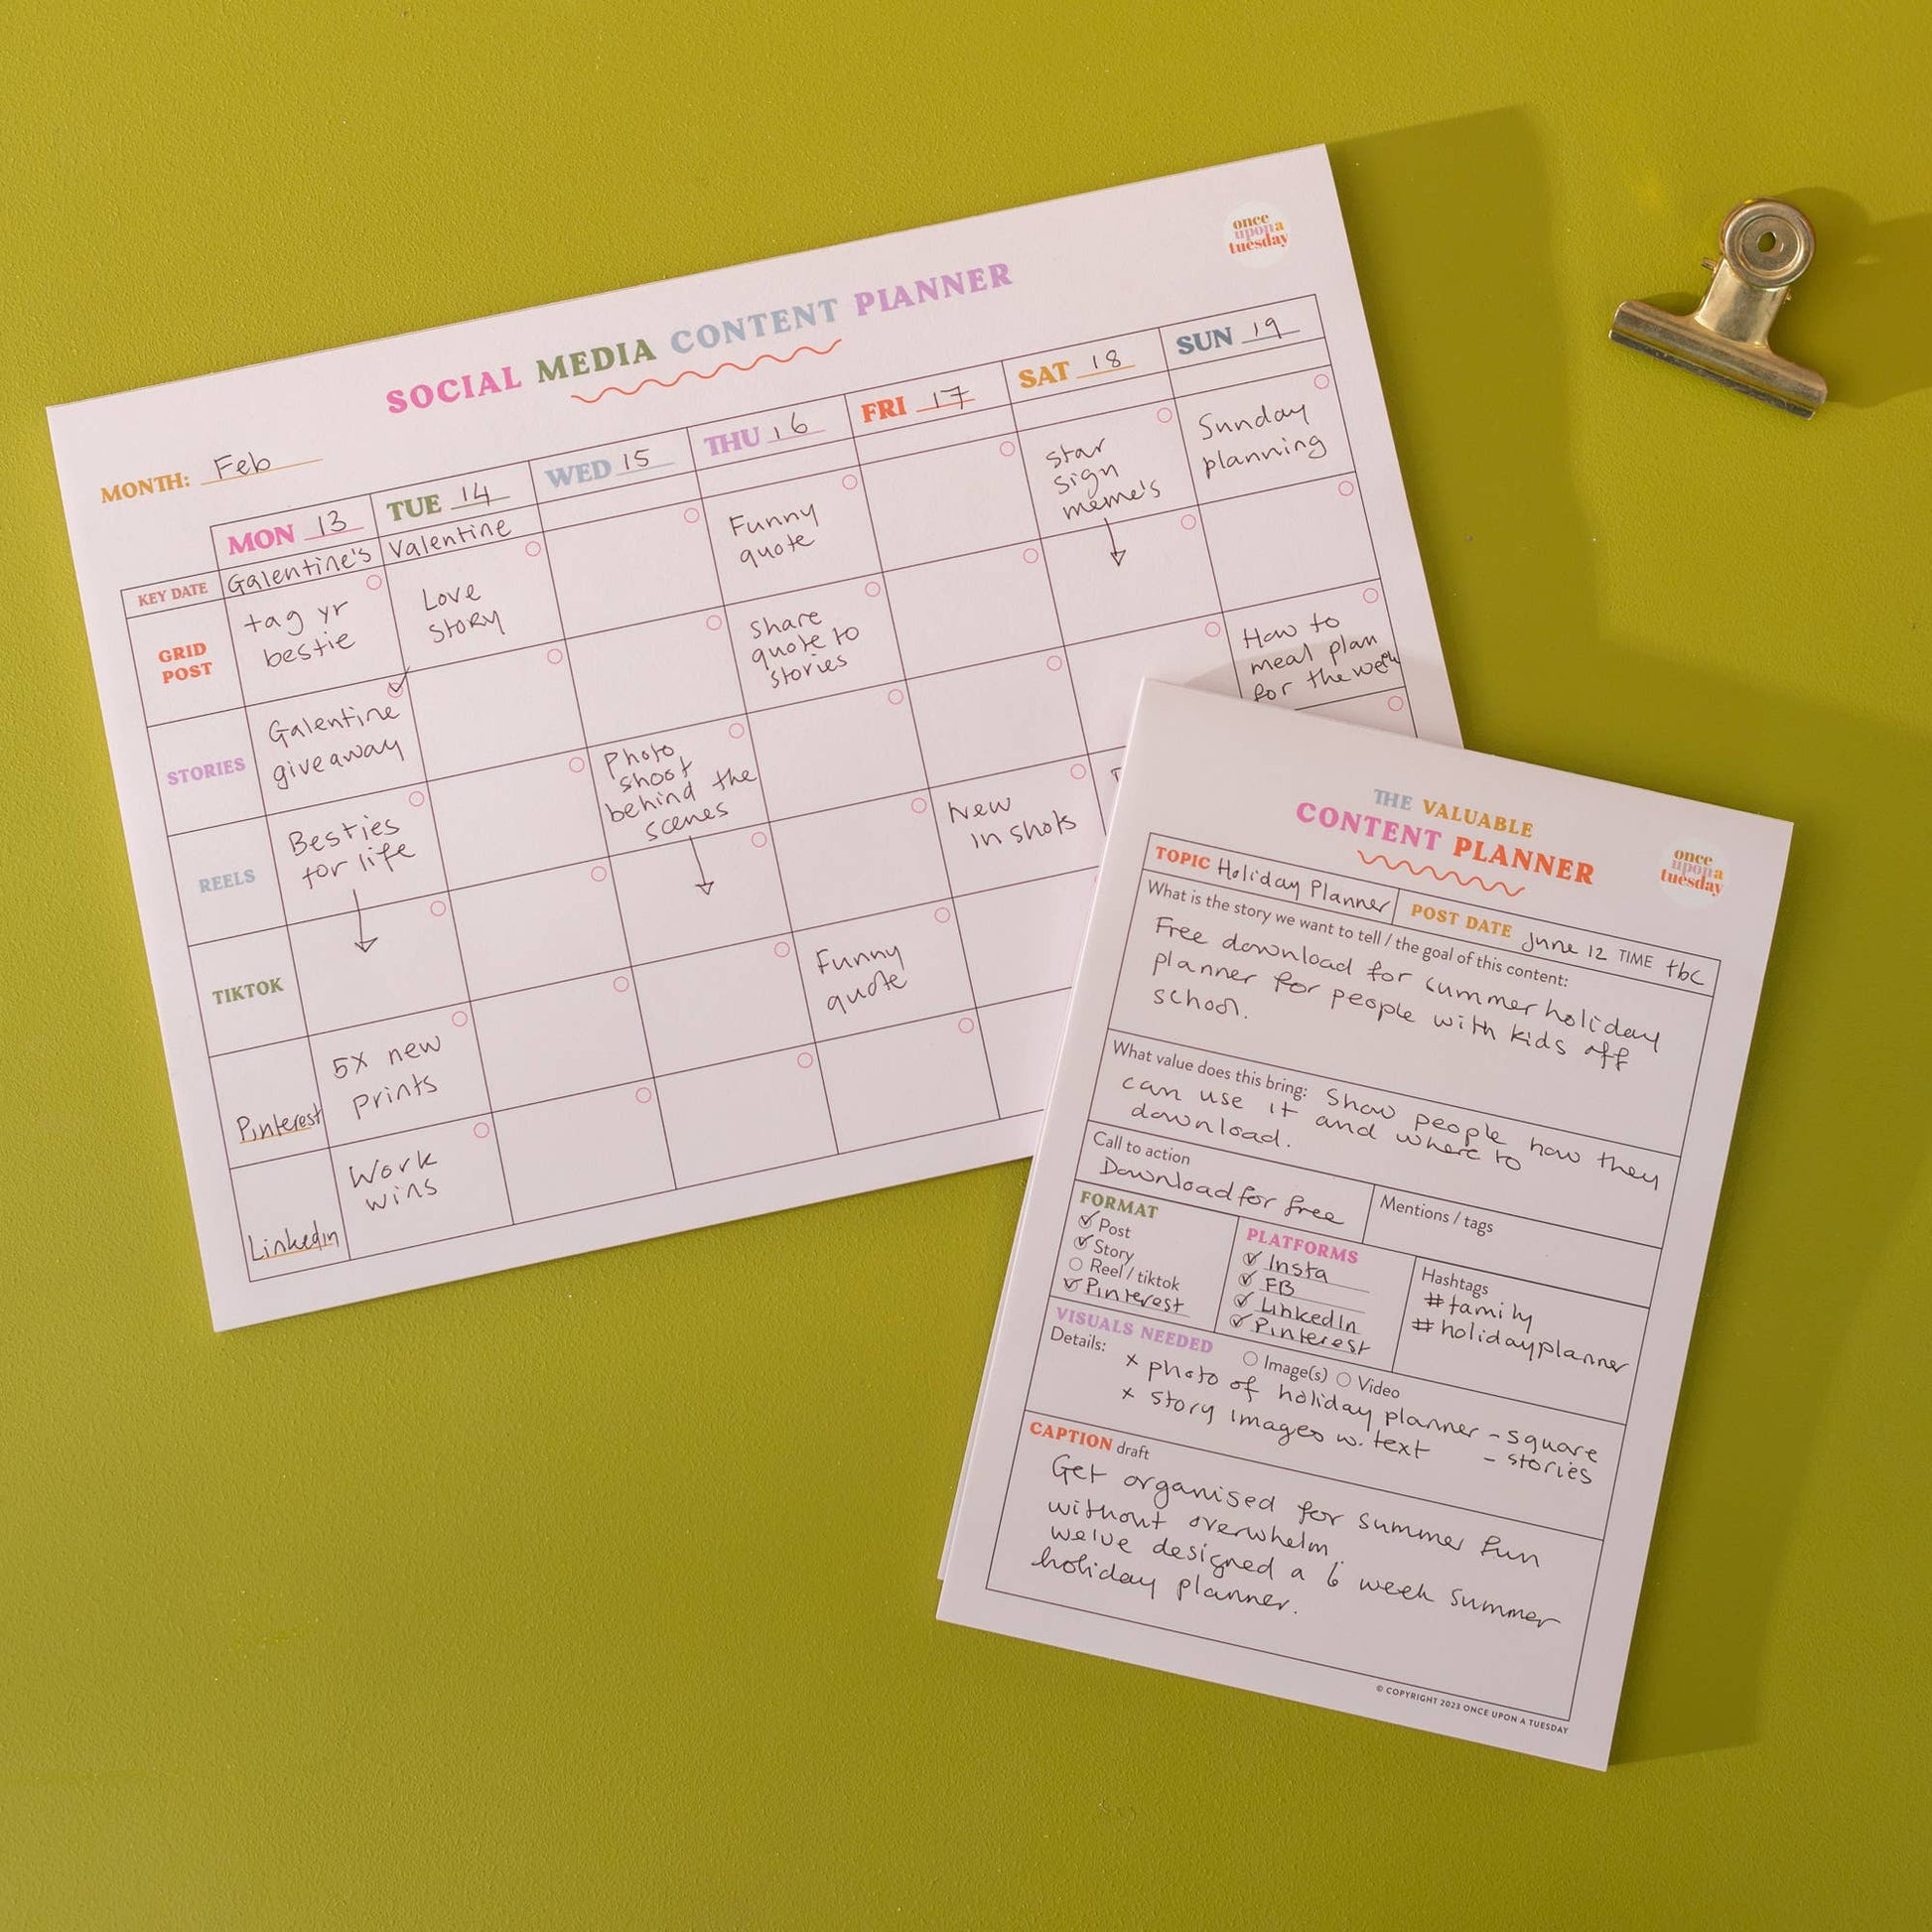 once
upon a
tuesday
SOCIAL MEDIA CONTENT PLANNER
MONTH: Feb
MON 13 TUE 14 WED 15 THU 16 FRI 17 SAT 18 SUN 19
KEY DATE Galentine's Valentine
GRID
POST
tag yr
bestie
Love
story
Funny
quote
star
sign
meme's
Sunday
planning
STORIES
Galentine
giveaway
Share
quote to
stories
REELS
Besties
for life
Photo
shoot
behind the
scenes
How to
meal plan
for the week
TIKTOK
New
in shots
Pinterest
5x new
prints
Funny
quote
LinkedIn
Work
wins
THE VALUABLE
CONTENT PLANNER
once
upon a
tuesday
TOPIC Holiday Planner POST DATE June 12 TIME tbc
What is the story we want to tell / the goal of this content:
Free download for summer holiday
planner for people with kids off
school.
What value does this bring: Show people how they
can use it and where to
download.
Call to action
Download for free
Mentions / tags
FORMAT
Post
Story
Reel / tiktok
Pinterest
PLATFORMS
Insta
FB
LinkedIn
Pinterest
Hashtags
#family
#holidayplanner
VISUALS NEEDED Image(s) Video
Details: x photo of holiday planner - square
- stories
x story images w. text
CAPTION draft
Get organised for summer fun
without overwhelm.
we've designed a 6 week summer
holiday planner.
© COPYRIGHT 2023 ONCE UPON A TUESDAY